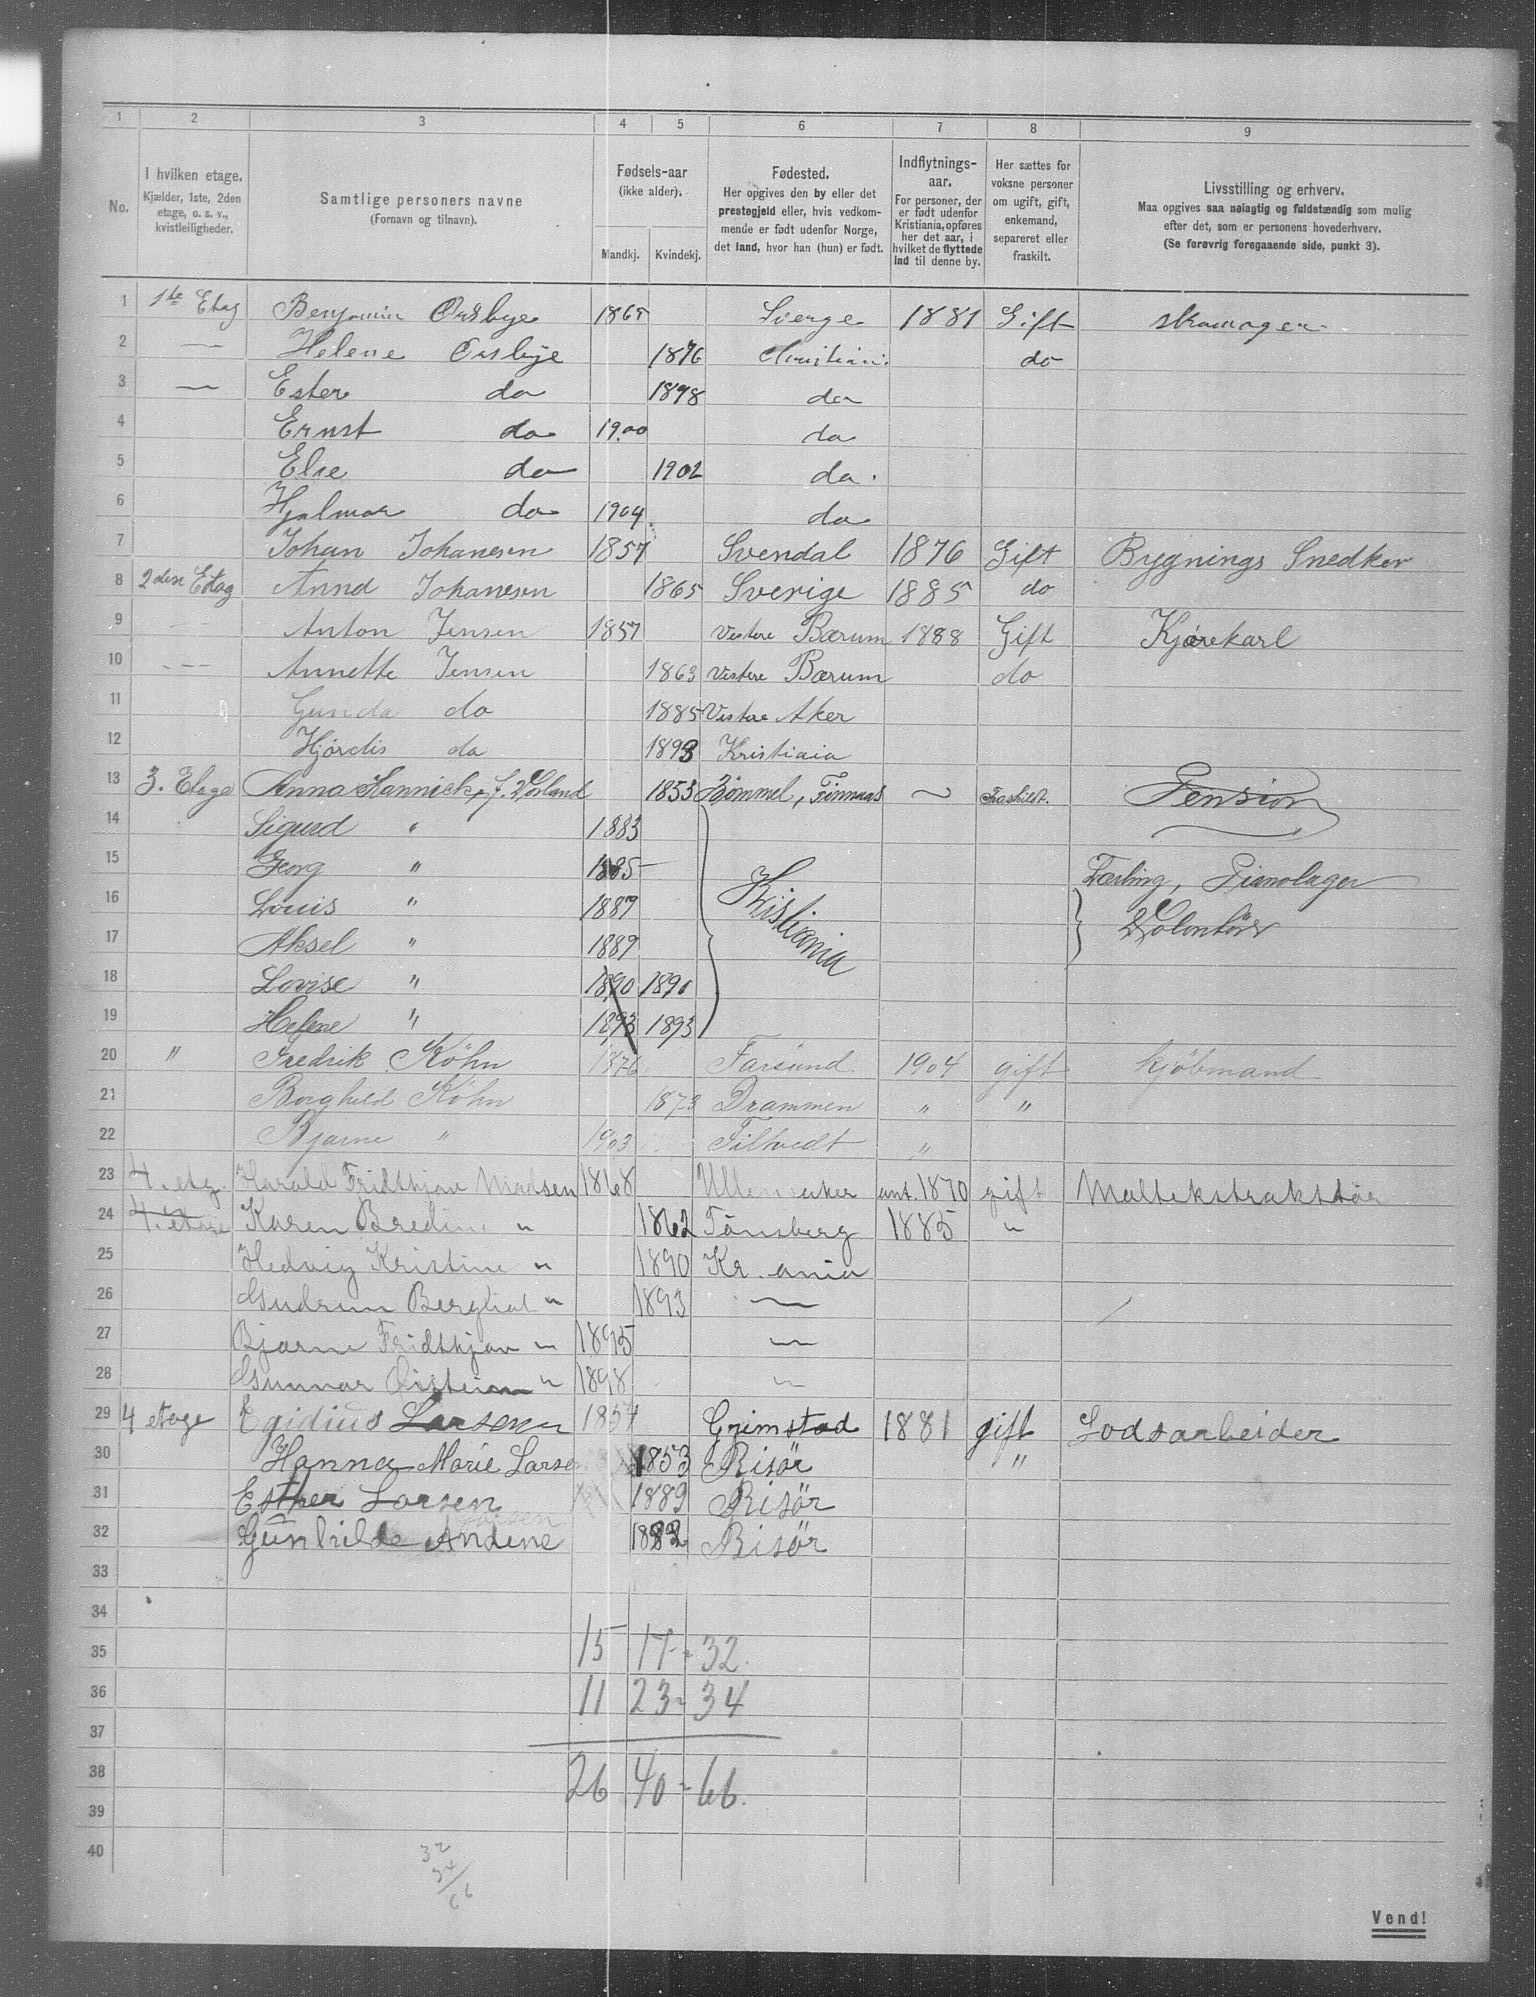 1 2 3 4 5 6 7 8 9
No.
I hvilken etage.
Kjælder, 1ste, 2den
etage, o. s. v.,
kvistleiligheder.
Samtlige personers navne
(Fornavn og tilnavn).
Fødsels-aar
(ikke alder).
Mandkj. Kvindekj.
Fødested.
Her opgives den by eller det
prestegjeld eller, hvis vedkom-
mende er født udenfor Norge,
det land, hvor han (hun) er født.
Indflytnings-
aar.
For personer, der
er født udenfor
Kristiania, opføres
her det aar, i
hvilket de flyttede
ind til denne by.
Her sættes for
voksne personer
om ugift, gift,
enkemand,
separeret eller
fraskilt.
Livsstilling og erhverv.
Maa opgives saa nøiagtig og fuldstændig som mulig
efter det, som er personens hovederhverv.
(Se forøvrig foregaaende side, punkt 3).
1 1ste Etag Benjamin 1865 Sverge 1881 Gift skomager
2 — Helene 1876 Christiani do
3 — Ester do 1898 do
4 Ernst do 1900 do
5 Else do 1902 do
6 Hjalmar do 1904 do
7 Johan Johanesen 1857 Svendal 1876 Gift Bygnings Snedker
8 2den Etag Anna Johanesen 1865 Sverige 1885 do
9 Anton Jensen 1857 Vestre Bærum 1888 Gift Kjørekarl
10 — Annette Jensen 1863 Vestere Bærum do
11 Gunda do 1885 Vestre Aker
12 Hjørdis do 1898 Kristiaia
13 3. Etage Anna Hannick, f. 1853 Bømmel, Finnaas ~ Fraskildt. Pension
14 Sigurd " 1883
15 Georg " 1885 Lærling, Pianolager
16 Louis " 1887 Kristiania Volontör
17 Aksel " 1889
18 Lovise " 1890 1890
19 Helene " 1893 1893
20 " Fredrik Köhn 1876 Farsund 1904 gift kjöbmand
21 Borghild Köhn 1873 Drammen " "
22 Bjarne " 1903 Filtvedt "
23 4. etg. Harald Fridthjov Madsen 1868 Ullensaker ant. 1870 gift Maltekstraktför
24 4. etage Karen Bredine " 1862 Tönsberg 1885 "
25 Hedvig Kristine " 1890 Kr.ania
26 Gudrun Bergliot " 1893 —
27 Bjarne Fridthjov " 1895 —
28 Gunnar Øistein " 1898 —
29 4 etage Egidius Larsen 1857 Grimstad 1881 gift Lodsarbeider
30 Hanna Marie Larse 1853 Risör "
31 Esther Larsen 1889 Risör
32 Gunhilde Andene Larsen 1882 Risör
33
34
35 15 17 - 32
36 11 23 - 34
37
38 26 40 - 66.
39
40
32
34
66
Vend!